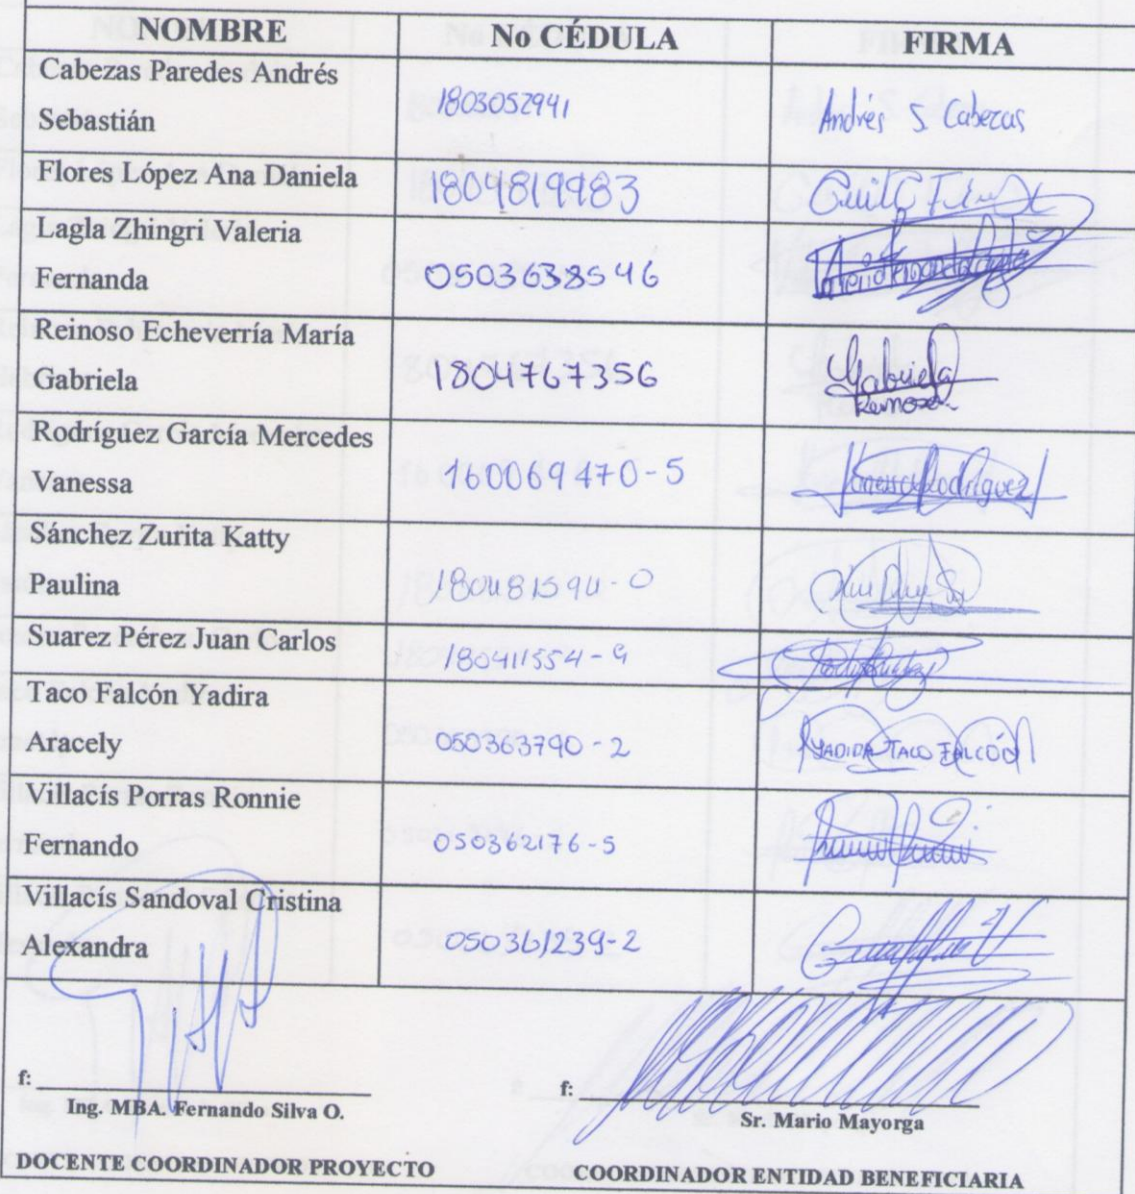 NOMBRE No CÉDULA FIRMA
Cabezas Paredes Andrés
Sebastián 1803052941 Andrés S. Cabezas
Flores López Ana Daniela 1804819983
Lagla Zhingri Valeria
Fernanda 0503638546
Reinoso Echeverría María
Gabriela 1804767356 Gabriela
Reinoso
Rodríguez García Mercedes
Vanessa 160069470-5 Vanessa Rodríguez
Sánchez Zurita Katty
Paulina 180481594-0
Suarez Pérez Juan Carlos 180411554-9
Taco Falcón Yadira
Aracely 050363790-2 YADIRA TACO FALCÓN
Villacís Porras Ronnie
Fernando 050362176-5
Villacís Sandoval Cristina
Alexandra 050361239-2
f: f:
Ing. MBA. Fernando Silva O. Sr. Mario Mayorga
DOCENTE COORDINADOR PROYECTO COORDINADOR ENTIDAD BENEFICIARIA